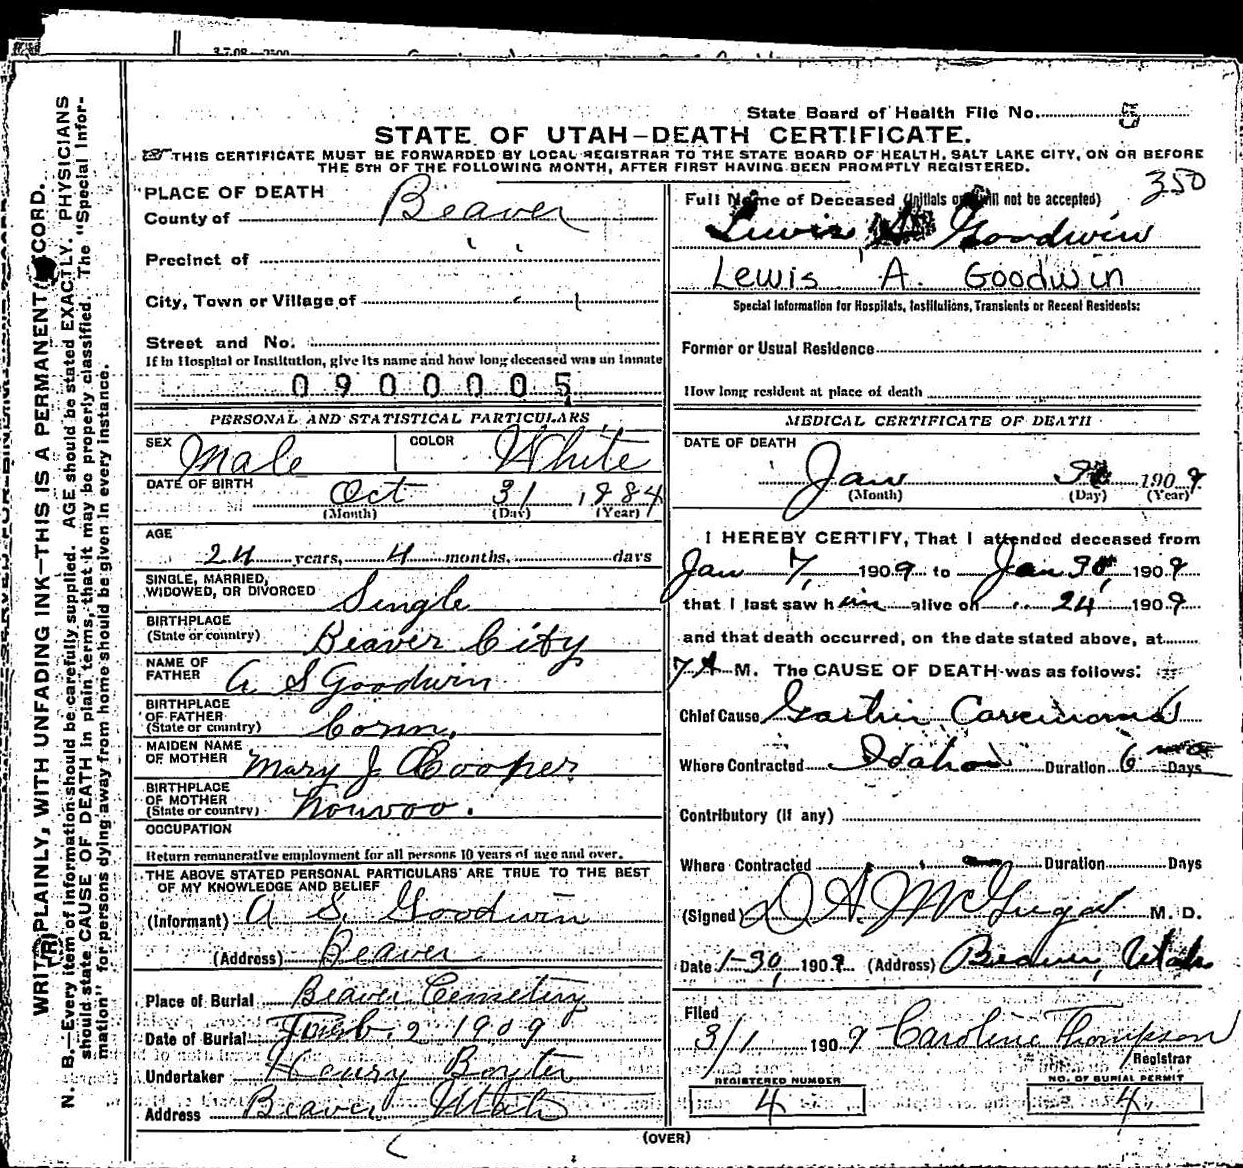 State Board of Health File No. 5
STATE OF UTAH—DEATH CERTIFICATE.
THIS CERTIFICATE MUST BE FORWARDED BY LOCAL REGISTRAR TO THE STATE BOARD OF HEALTH, SALT LAKE CITY, ON OR BEFORE
THE 5TH OF THE FOLLOWING MONTH, AFTER FIRST HAVING BEEN PROMPTLY REGISTERED.
350
WRITE PLAINLY, WITH UNFADING INK—THIS IS A PERMANENT RECORD.
N. B.—Every item of information should be carefully supplied. AGE should be stated EXACTLY. PHYSICIANS
should state CAUSE OF DEATH in plain terms, that it may be properly classified. The "Special Infor-
mation" for persons dying away from home should be given in every instance.
PLACE OF DEATH
County of Beaver
Precinct of
City, Town or Village of
Street and No.
If in Hospital or Institution, give its name and how long deceased was an inmate
0900005
PERSONAL AND STATISTICAL PARTICULARS
SEX Male COLOR White
DATE OF BIRTH Oct 31 1884
(Month) (Day) (Year)
AGE
24 years, 4 months, days
SINGLE, MARRIED,
WIDOWED, OR DIVORCED Single
BIRTHPLACE
(State or country) Beaver City
NAME OF
FATHER A S Goodwin
BIRTHPLACE
OF FATHER
(State or country) Conn.
MAIDEN NAME
OF MOTHER Mary J Cooper
BIRTHPLACE
OF MOTHER
(State or country) Nouvoo.
OCCUPATION
Return remunerative employment for all persons 10 years of age and over.
THE ABOVE STATED PERSONAL PARTICULARS ARE TRUE TO THE BEST
OF MY KNOWLEDGE AND BELIEF
(Informant) A S. Goodwin
(Address) Beaver
Place of Burial Beaver Cemetery
Date of Burial 2 1909
Undertaker Henry Boyter
Address Beaver Utah
Full Name of Deceased (Initials will not be accepted)
Lewis A Goodwin
Lewis A. Goodwin
Special Information for Hospitals, Institutions, Transients or Recent Residents:
Former or Usual Residence
How long resident at place of death
MEDICAL CERTIFICATE OF DEATH
DATE OF DEATH
Jan 30 1909
(Month) (Day) (Year)
I HEREBY CERTIFY, That I attended deceased from
Jan 7, 1909 to Jan 30, 1909
that I last saw him alive on " 24 1909
and that death occurred, on the date stated above, at
7 A M. The CAUSE OF DEATH was as follows:
Chief Cause Gastric Carcinoma
Where Contracted Idaho Duration 6 mo Days
Contributory (If any)
Where Contracted Duration Days
(Signed) D A. McGregor M. D.
Date 1-30, 1909 (Address) Beaver, Utah
Filed
3/1 1909 Caroline Thompson
Registrar
REGISTERED NUMBER
4
NO. OF BURIAL PERMIT
4
(OVER)